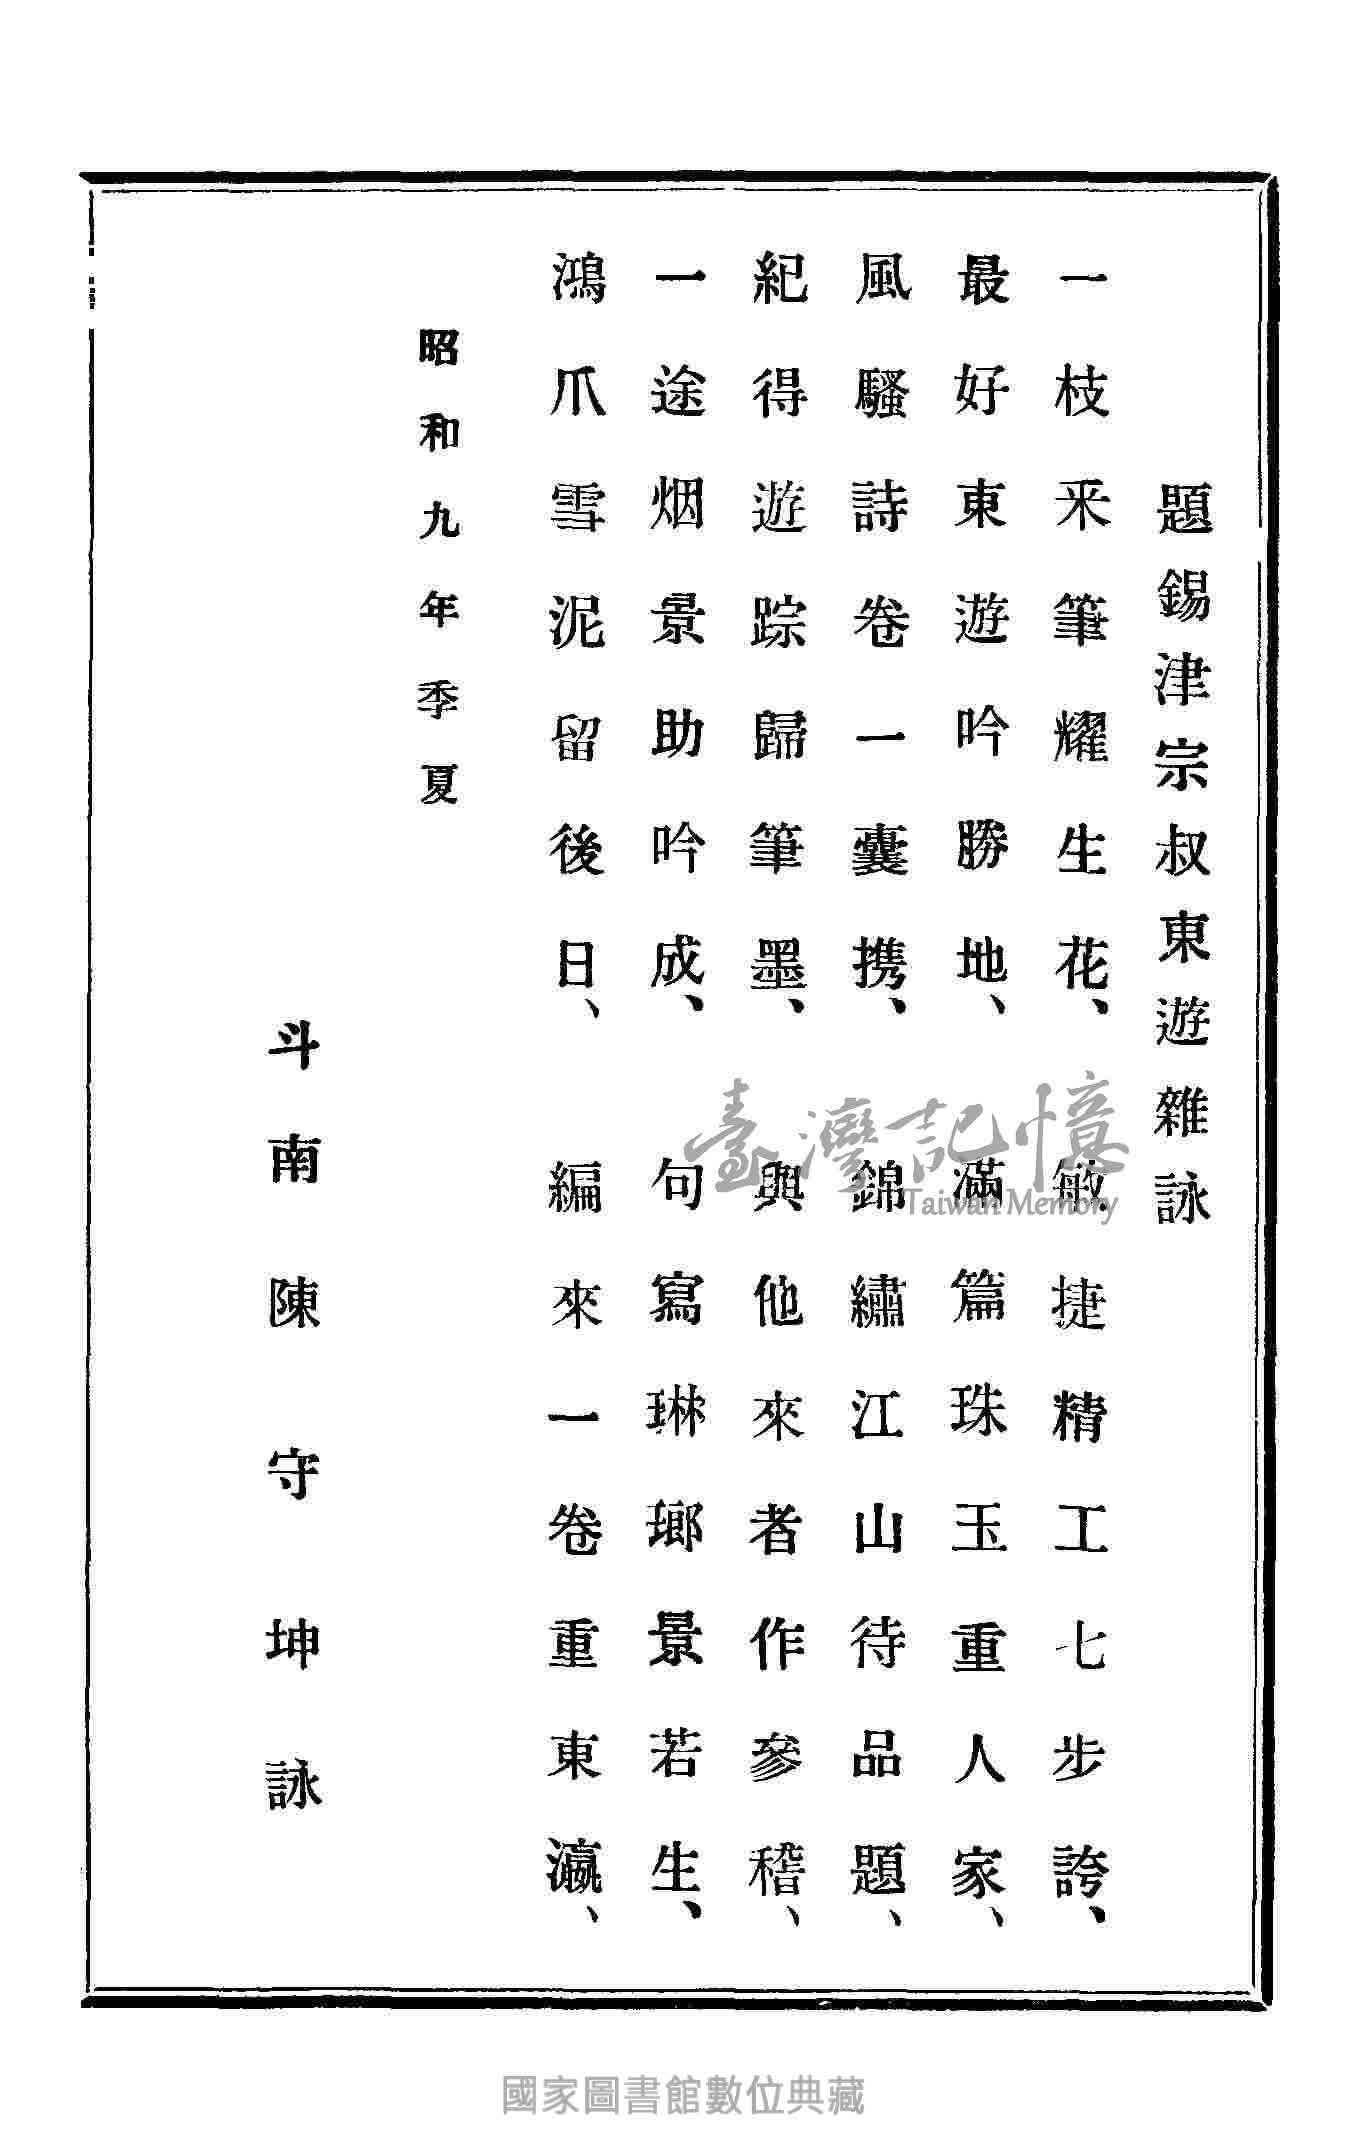 題錫津宗叔東遊雜詠
一枝采筆耀生花、　敏捷精工七步誇、
最好東遊吟勝地、　滿篇珠玉重人家、
風騷詩卷一囊携、　錦繡江山待品題、
紀得遊踪歸筆墨、　與他來者作參稽、
一途烟景助吟成、　句寫琳瑯景若生、
鴻爪雪泥留後日、　編來一卷重東瀛、
昭和九年季夏
斗南陳守坤詠
臺灣記憶
Taiwan Memory
國家圖書館數位典藏